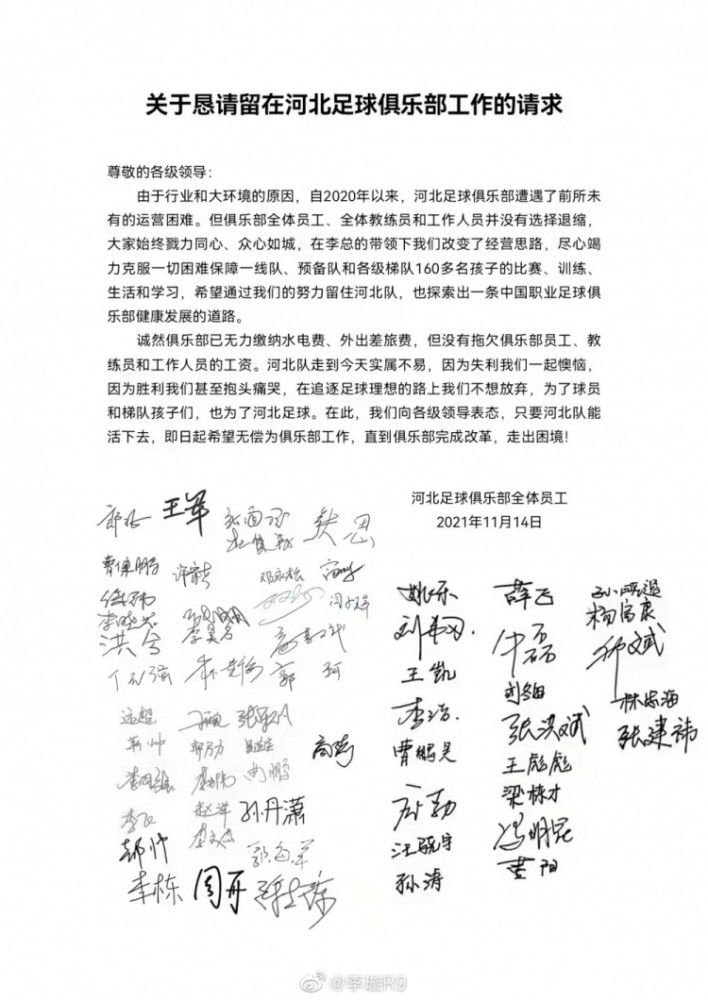 关于恳请留在河北足球俱乐部工作的请求
尊敬的各级领导：
由于行业和大环境的原因，自2020年以来，河北足球俱乐部遭遇了前所未
有的运营困难。但俱乐部全体员工、全体教练员和工作人员并没有选择退缩，
大家始终戮力同心、众心如城，在李总的带领下我们改变了经营思路，尽心竭
力克服一切困难保障一线队、预备队和各级梯队160多名孩子的比赛、训练、
生活和学习，希望通过我们的努力留住河北队，也探索出一条中国职业足球俱
乐部健康发展的道路。
诚然俱乐部已无力缴纳水电费、外出差旅费，但没有拖欠俱乐部员工、教
练员和工作人员的工资。河北队走到今天实属不易，因为失利我们一起懊恼，
因为胜利我们甚至抱头痛哭，在追逐足球理想的路上我们不想放弃，为了球员
和梯队孩子们，也为了河北足球。在此，我们向各级领导表态，只要河北队能
活下去，即日起希望无偿为俱乐部工作，直到俱乐部完成改革，走出困境！
河北足球俱乐部全体员工
2021年11月14日
王军
洪兮
郭珂
孙丹潇
郝帅
李栋 周开
姚乐
王凯
李浩
曹鹏昊
孙涛
薛飞
张洪斌
王彪彪
梁栋才
冯明昆
杨富康
林志海
张建祎
@李璇R9